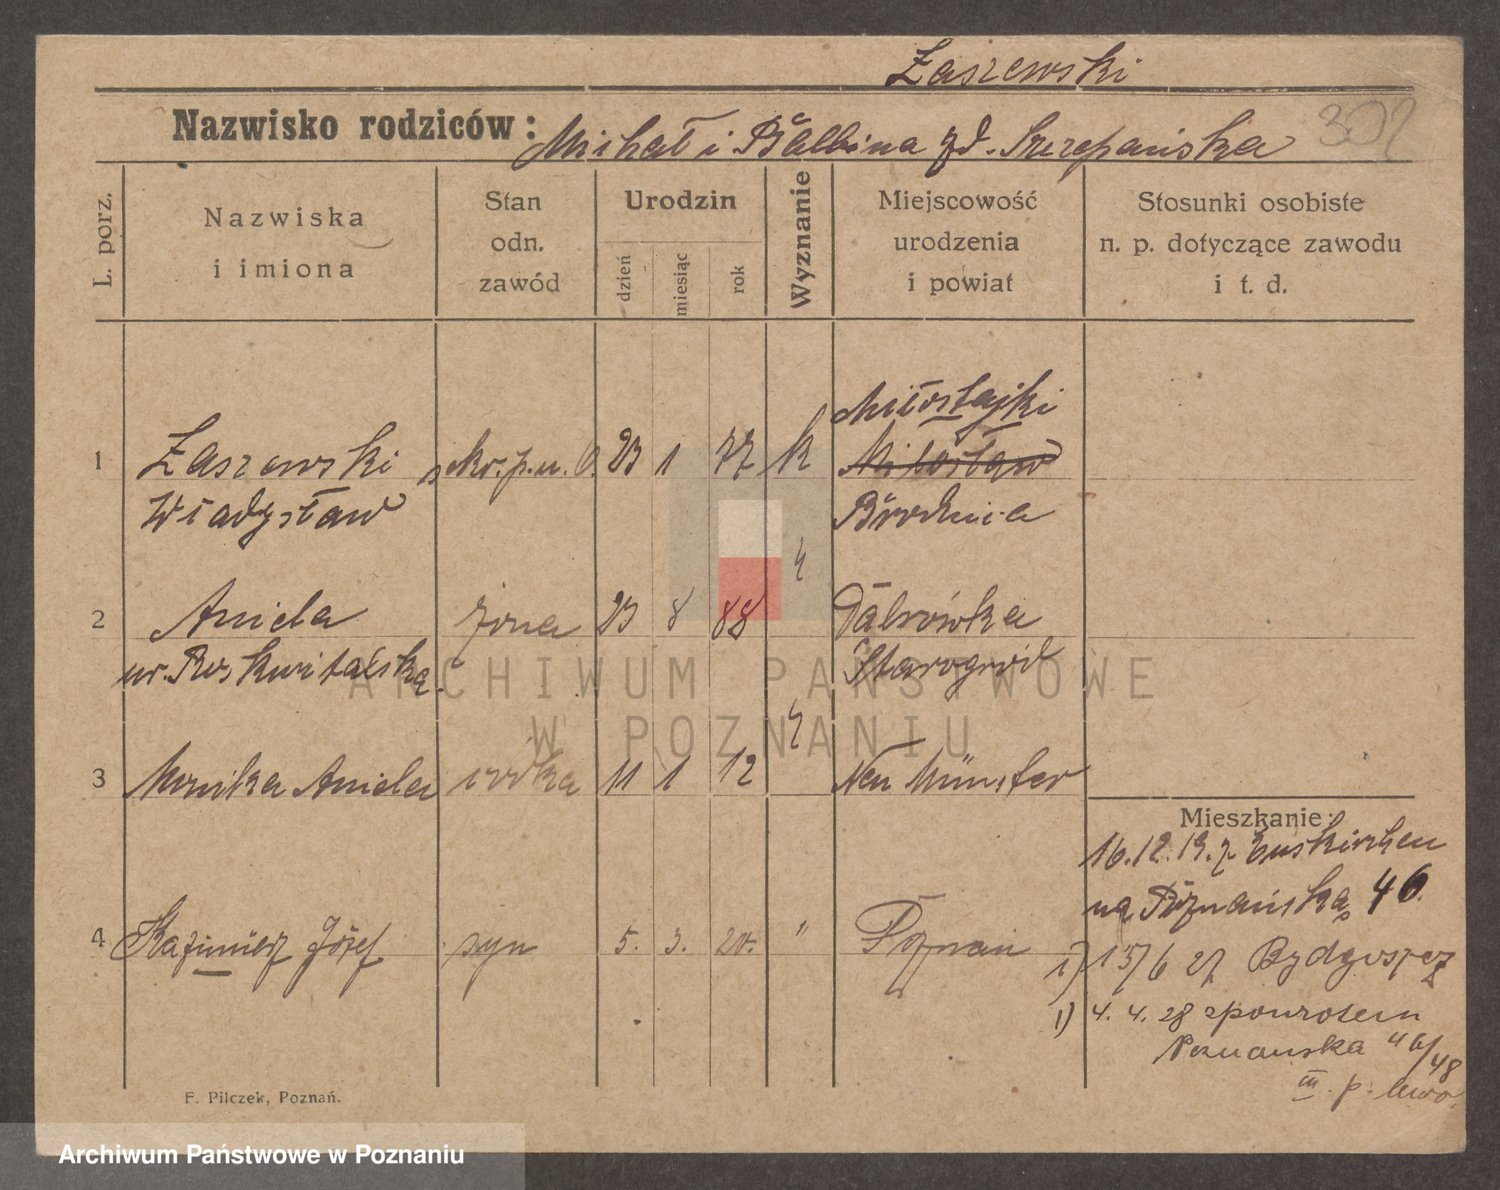 Łaszewski
Nazwisko rodziców: Michał i Balbina zd. Szczepańska
302
L. porz.
Nazwiska i imiona
Stan odn. zawód
Urodzin
dzień miesiąc rok
Wyznanie
Miejscowość urodzenia i powiat
Stosunki osobiste n. p. dotyczące zawodu i t. d.
Miłostajki
1 Łaszewski 23 1 77 k Miłosław
Władysław Brodnica
2 Aniela żona 23 8 88 Dąbrówka
ur. Starogród
3 Monika Aniela córka 11 1 12 Neu Münster
Mieszkanie:
16.12.19. z Euskirchen
na Poznańska 46.
4 Kazimierz Józef syn 5. 3. 20. " Poznań
1) 15/6 27 Bydgoszcz
1) 4. 4. 28 zpowrotem
Poznanska 46/48
III. p. lewo.
F. Pilczek, Poznań.
ARCHIWUM PAŃSTWOWE
W POZNANIU
Archiwum Państwowe w Poznaniu